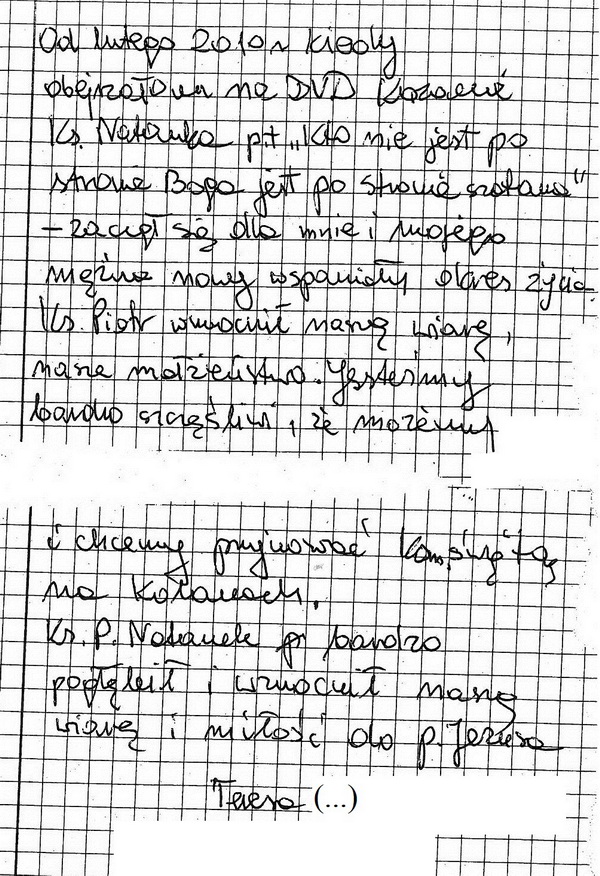 Od lutego 2010 r kiedy
obejrzałam na DVD kazanie
Ks. Natanka pt „Kto nie jest po
stronie Boga jest po stronie szatana"
- zaczął się dla mnie i mojego
męża nowy wspaniały okres życia.
Ks. Piotr wzmocnił naszą wiarę,
nasze małżeństwo. Jesteśmy
bardzo szczęśliwi, że możemy
i chcemy przyjmować kom. świętą
na kolanach.
Ks. P. Natanek bardzo
pogłębił i wzmocnił naszą
wiarę i miłość do p. Jezusa
Teresa (...)